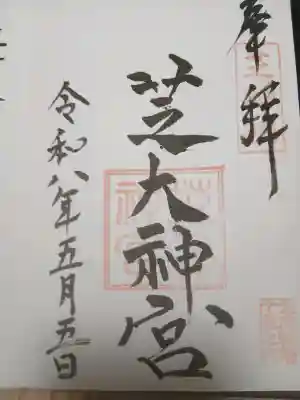 奉拝
芝大神宮
令和八年五月五日